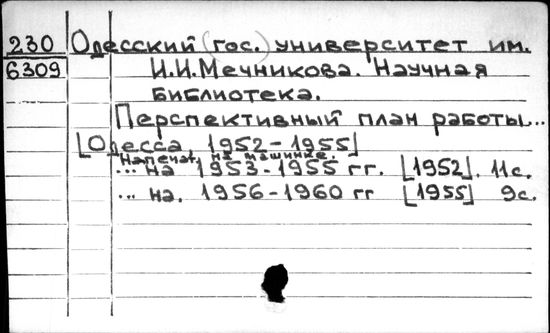 230 Одесский (гос.) университет им.
6309 И.И.Мечникова. Научная
библиотека.
Перспективный план работы...
[Одесса, 1952-1955]
Напечат. на машинке.
... на 1953-1955 гг. [1952]. 11с.
... на. 1956-1960 гг [1955] 9с.